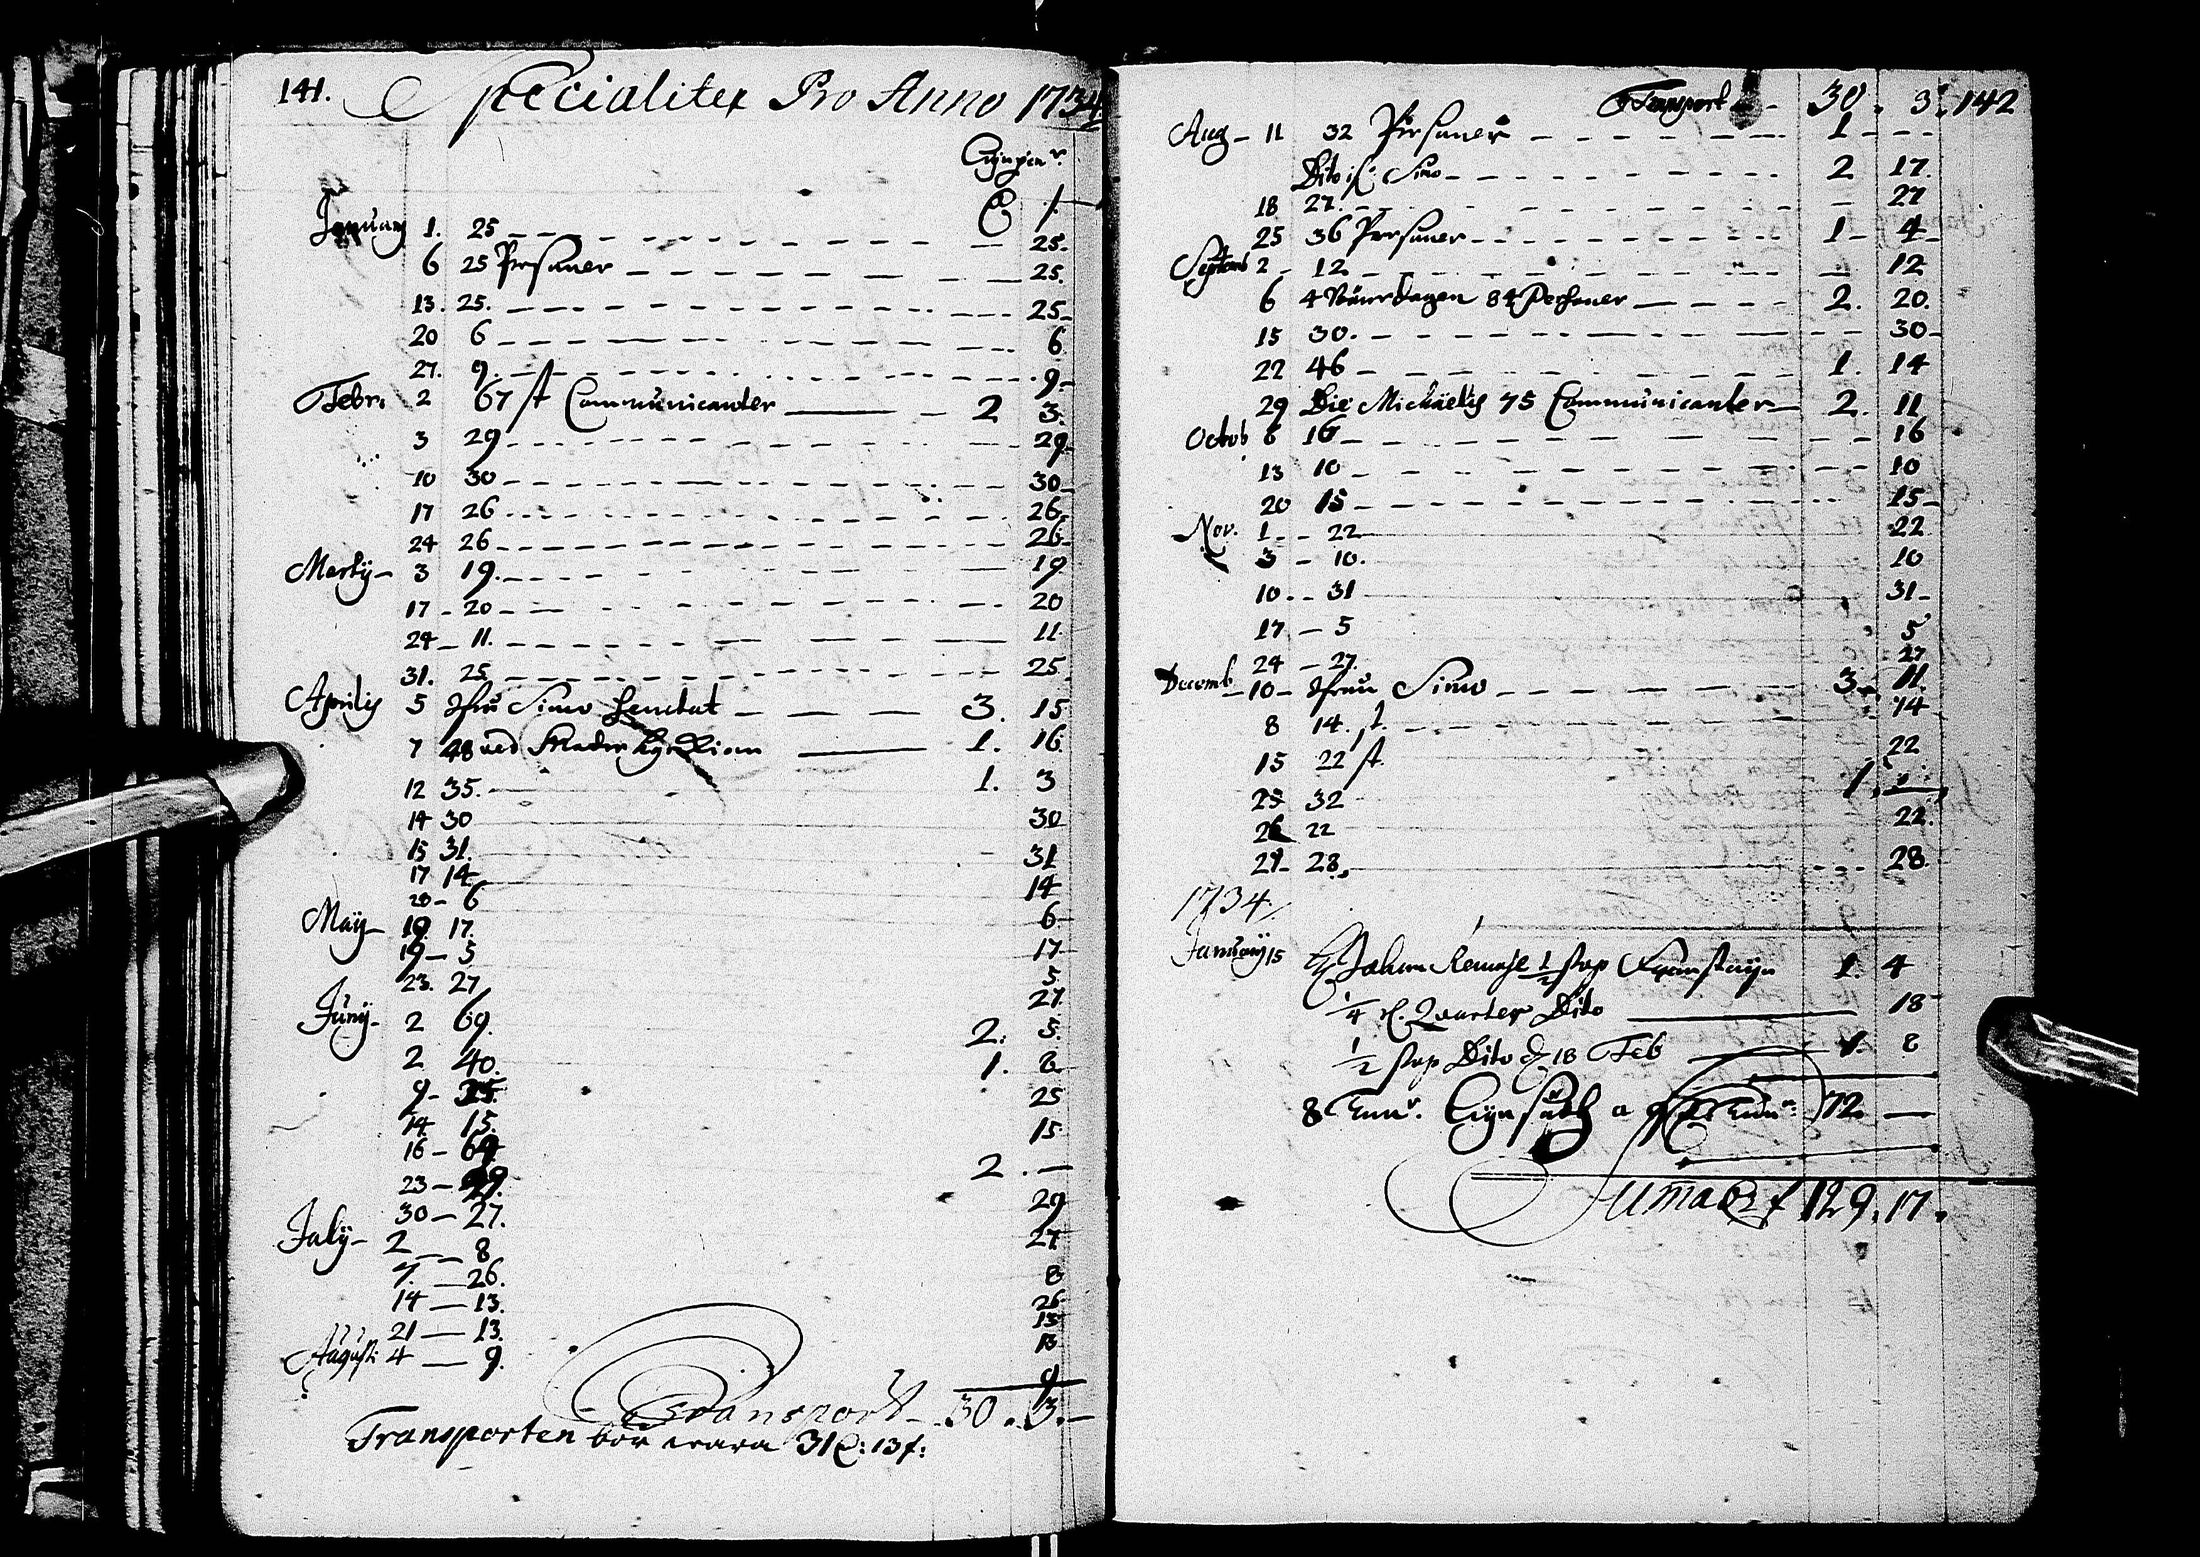 141. Specialiter Pro Anno 1734
January 1. 25 25.
6 25 Persuner 25.
13. 25. 25
20 6 6
27. 9. 9
Febr: 2 67 st Communicanter 2 3.
3 29 29
10 30 30
17 26 26
24 26 26
Martÿ 3 19. 19
17 20 20
24 11. 11.
31. 25 25
Aprilis 5 Simo 3. 15
7 48 1. 16
12 35. 1. 3
14 30 30
15 31. 31
17 14 14
20 6 6
Maÿ 10. 17. 17
19 5 5
23. 27 27
Junÿ 2 69. 2: 5
2 40. 1. 8
9 25. 25
14 15. 15
16 64 2. —
23 29. 29
30 27. 27
Julÿ 2 8 8
7. 26. 26
14 13. 13
21 13. 13
Augusti 4 9. 9
Transport 30. 3.
Transporten bör wara 31 : 13 :
Transport 30. 3. 142
Aug 11 32 Persuner 1
Dito Simo 2 17.
18 27. 27
25 36 Persuner 1 4
Septemb 2 12 12
6 4 Bänedagen 84 Persuner 2. 20.
15 30. 30
22 46 1. 14
29 Die Michaelis 75 Communicanter 2. 11
Octob 6 16 16
13 10 10
20 15 15
Nov. 1 22 22
3 10. 10
10 31 31
17 5 5
24 27. 27
Decemb 10 Simo 3 11.
8 14. st. 14
15 22 st. 22
25 32 1.
26 22 22.
29 28. 28.
1734.
January 15 Johan 1/2 stop 1. 4
1/4 Quarter Dito 18
1/2 stop Dito 18 Feb 1. 8
8 Tunr. a 72. —
Suma 129. 17.